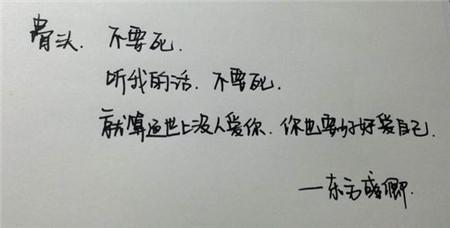 骨头、不要死.
听我的话、不要死.
就算这世上没人爱你、你也要好好爱自己.
—东方盛卿.